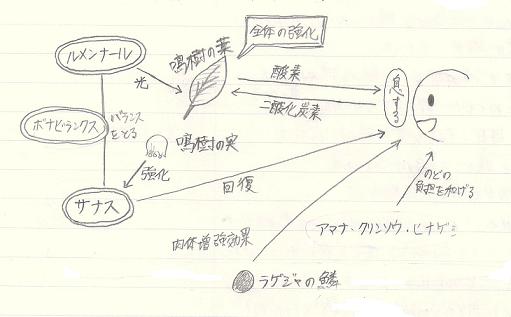 全体の強化
ルメンナール
鳴樹の葉
光
酸素
二酸化炭素
息する
ボナビランクス
バランス
をとる
鳴樹の実
強化
サナス
回復
のどの
負担を和げる
アマナ・クリンソウ・ヒナゲシ
肉体増強効果
ラゲジャの鱗